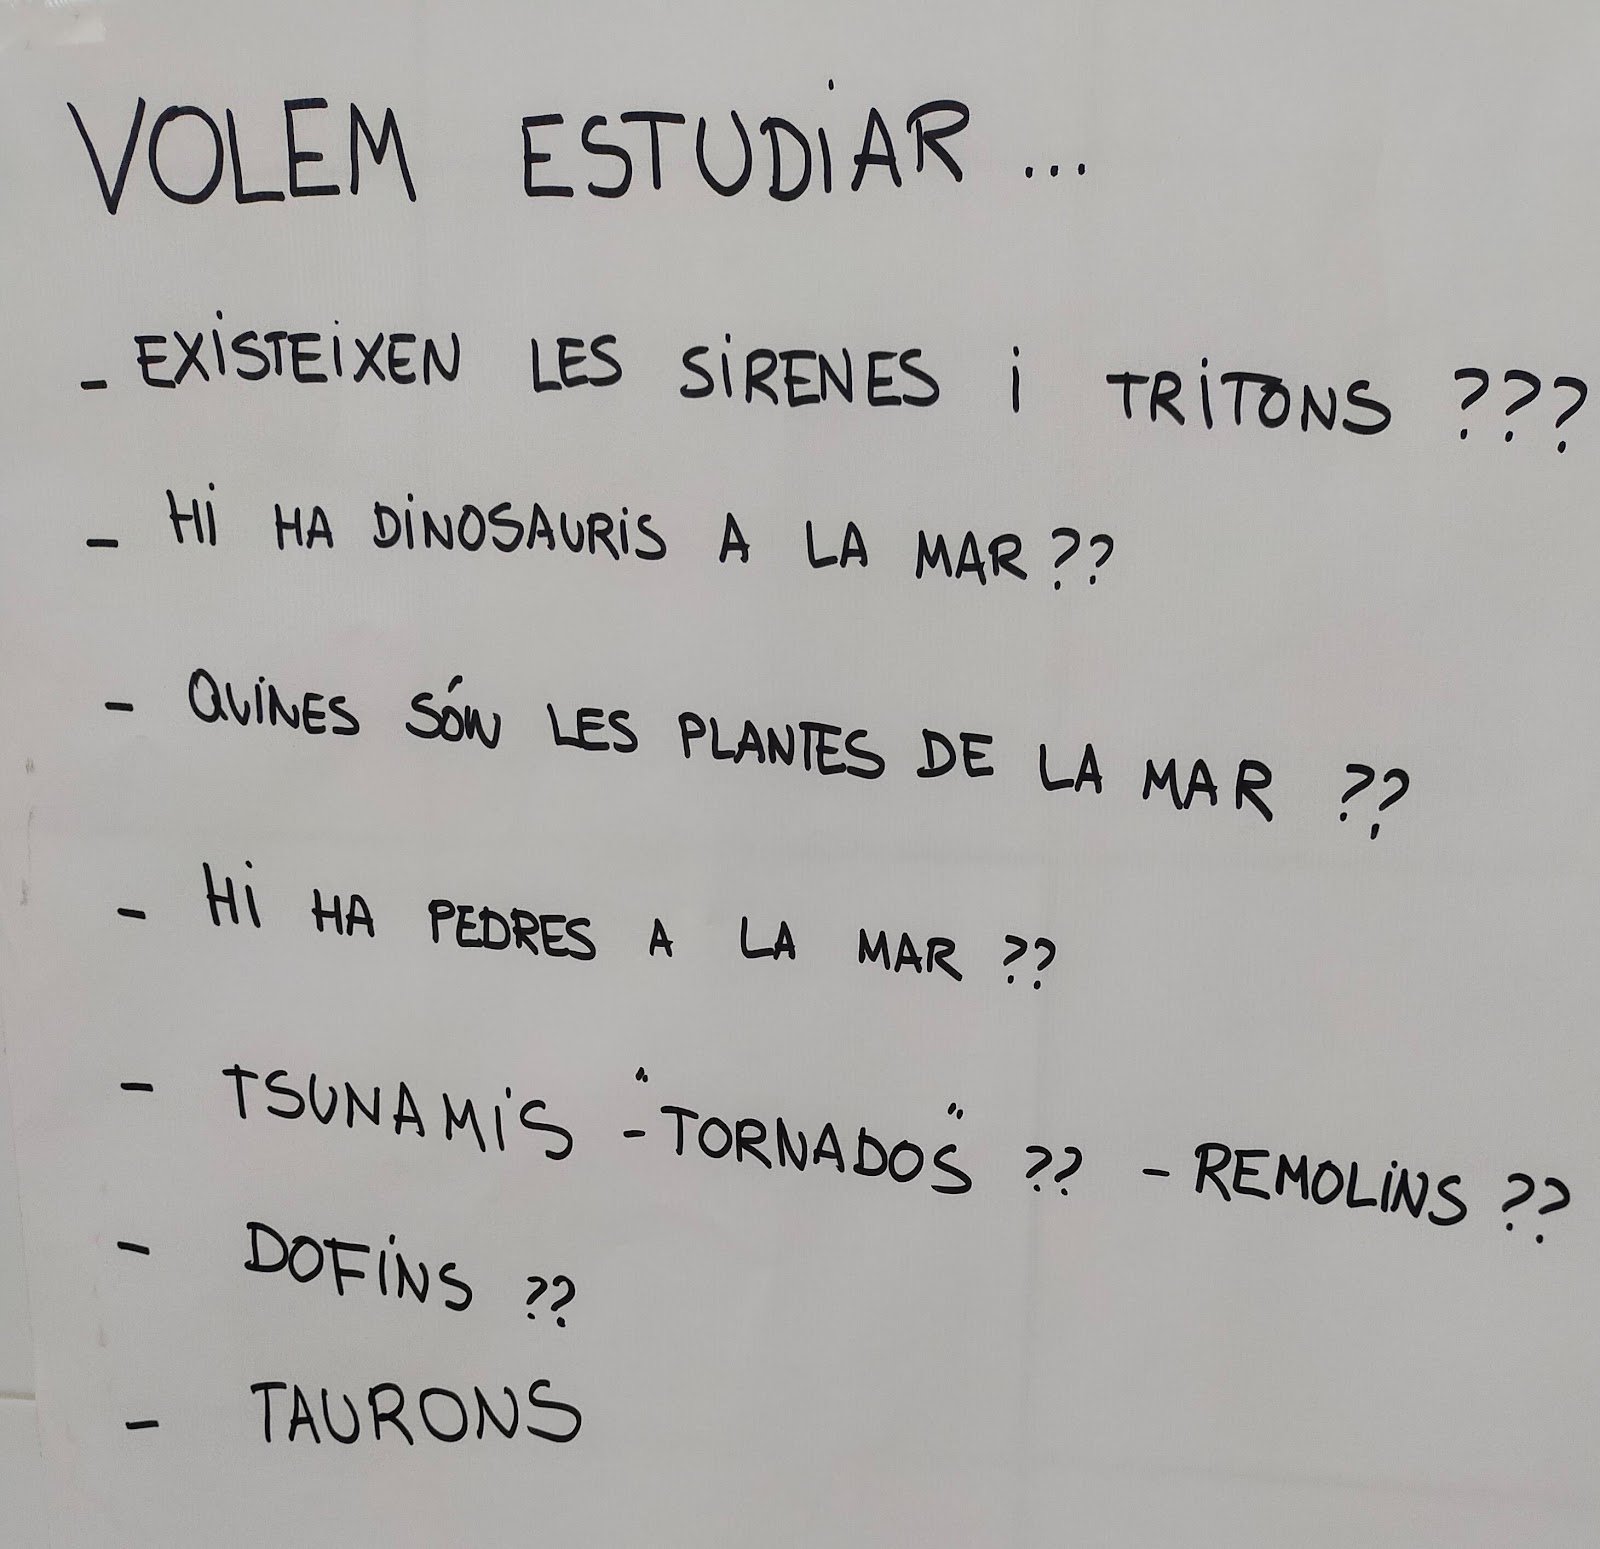 VOLEM ESTUDIAR ...
- EXISTEIXEN LES SIRENES I TRITONS ???
- HI HA DINOSAURIS A LA MAR ??
- QUINES SÓN LES PLANTES DE LA MAR ??
- HI HA PEDRES A LA MAR ??
- TSUNAMIS - "TORNADOS" ?? - REMOLINS ??
- DOFINS ??
- TAURONS